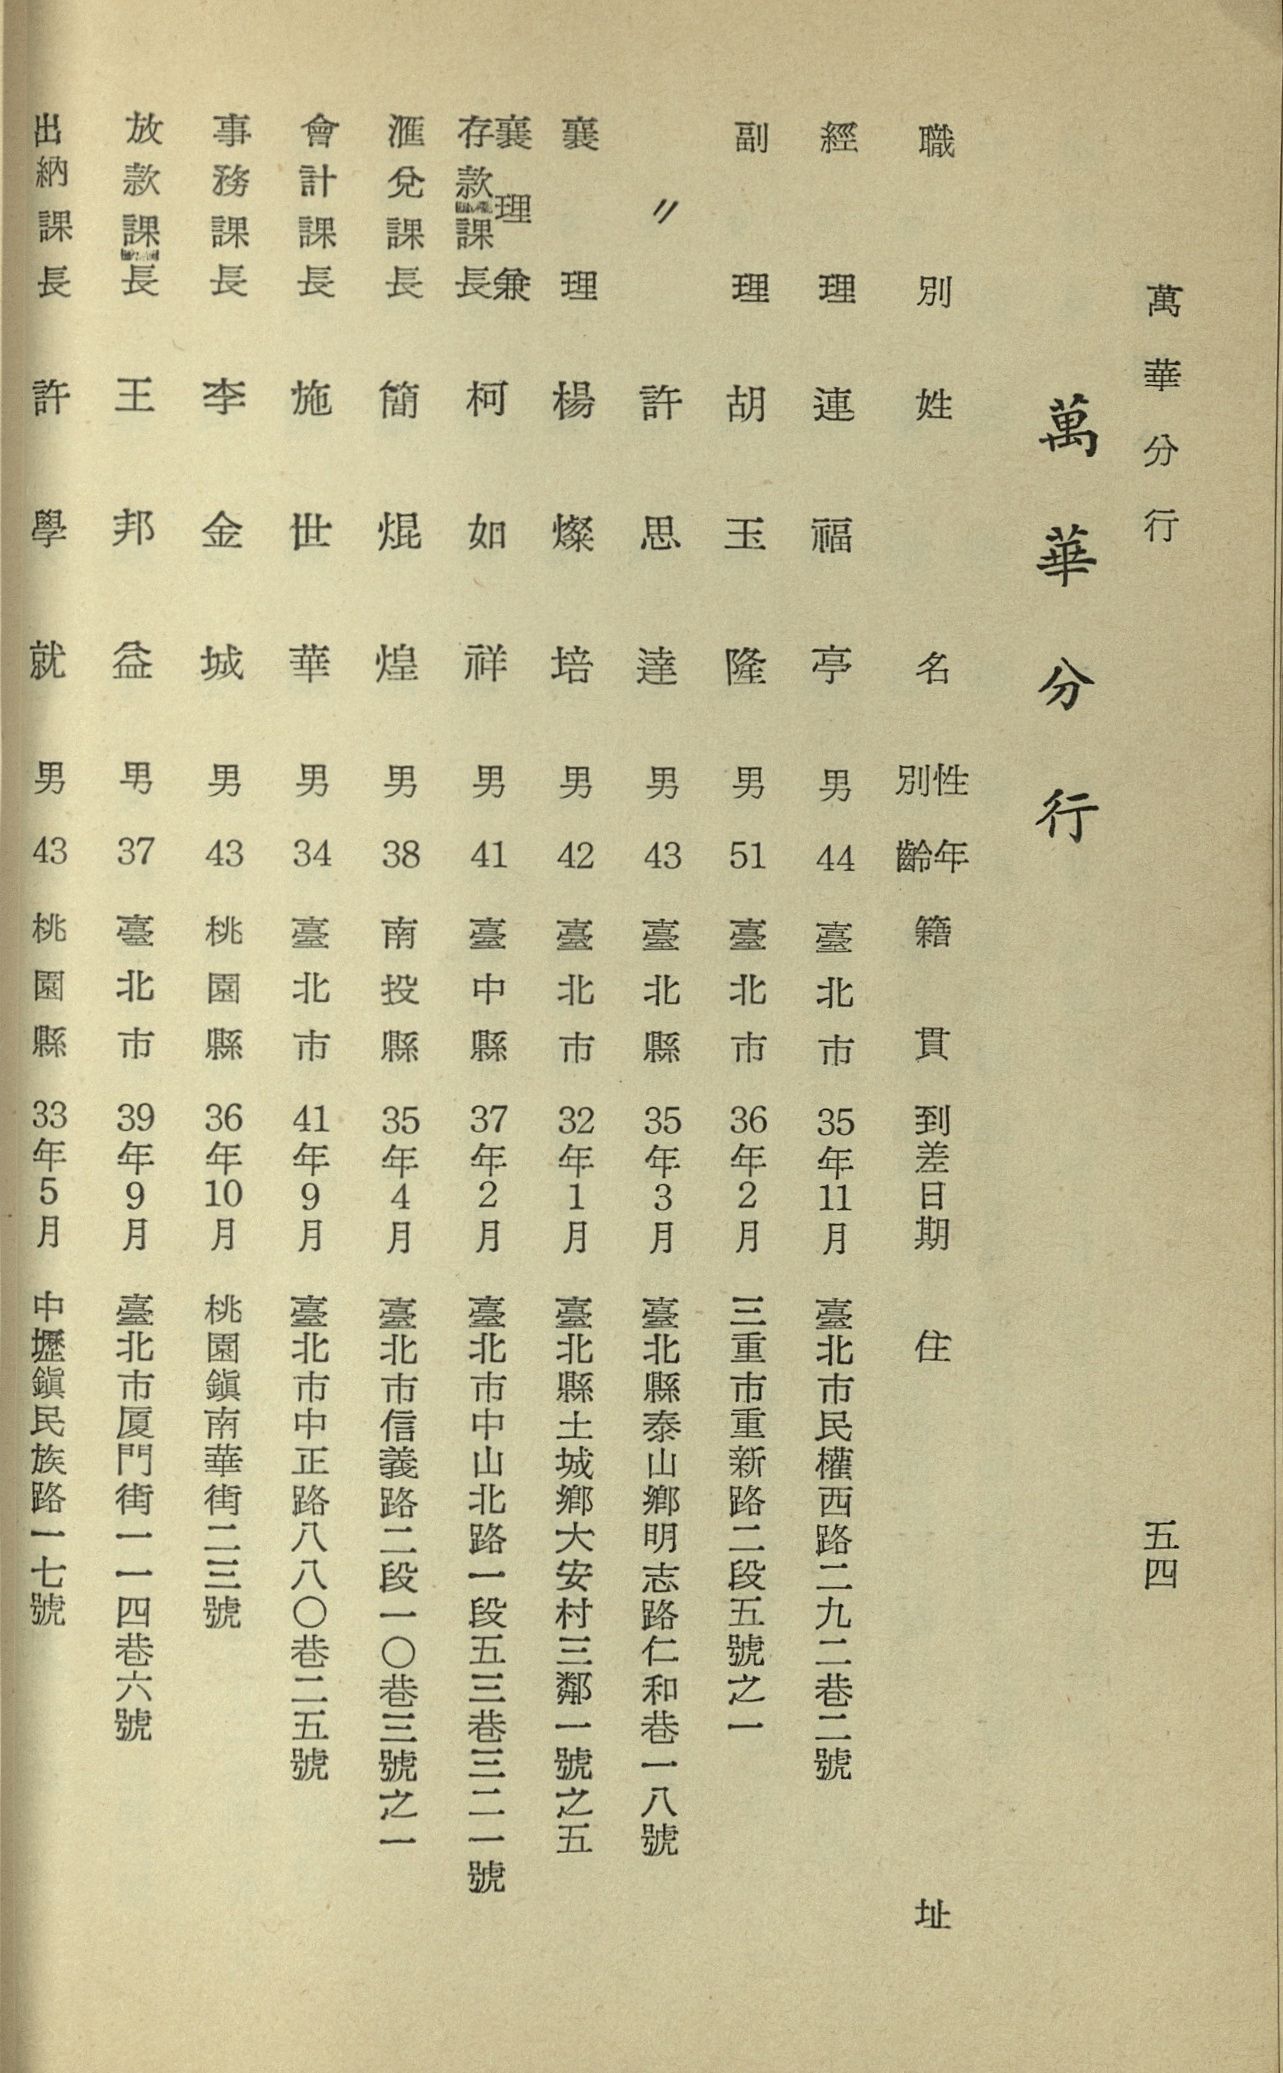 萬華分行
五四
萬華分行
職別 姓名 性別 年齡 籍貫 到差日期 住址
經理 連福亭 男 44 臺北市 35年11月 臺北市民權西路二九二巷二號
副理 胡玉隆 男 51 臺北市 36年2月 三重市重新路二段五號之一
〃 許思達 男 43 臺北縣 35年3月 臺北縣泰山鄉明志路仁和巷一八號
襄理 楊燦培 男 42 臺北市 32年1月 臺北縣土城鄉大安村三鄰一號之五
襄理兼存款課長 柯如祥 男 41 臺中縣 37年2月 臺北市中山北路一段五三巷三二一號
滙兌課長 簡焜煌 男 38 南投縣 35年4月 臺北市信義路二段一〇巷三號之一
會計課長 施世華 男 34 臺北市 41年9月 臺北市中正路八八〇巷二五號
事務課長 李金城 男 43 桃園縣 36年10月 桃園鎭南華街二三號
放款課長 王邦益 男 37 臺北市 39年9月 臺北市厦門街一一四巷六號
出納課長 許學就 男 43 桃園縣 33年5月 中壢鎭民族路一七號